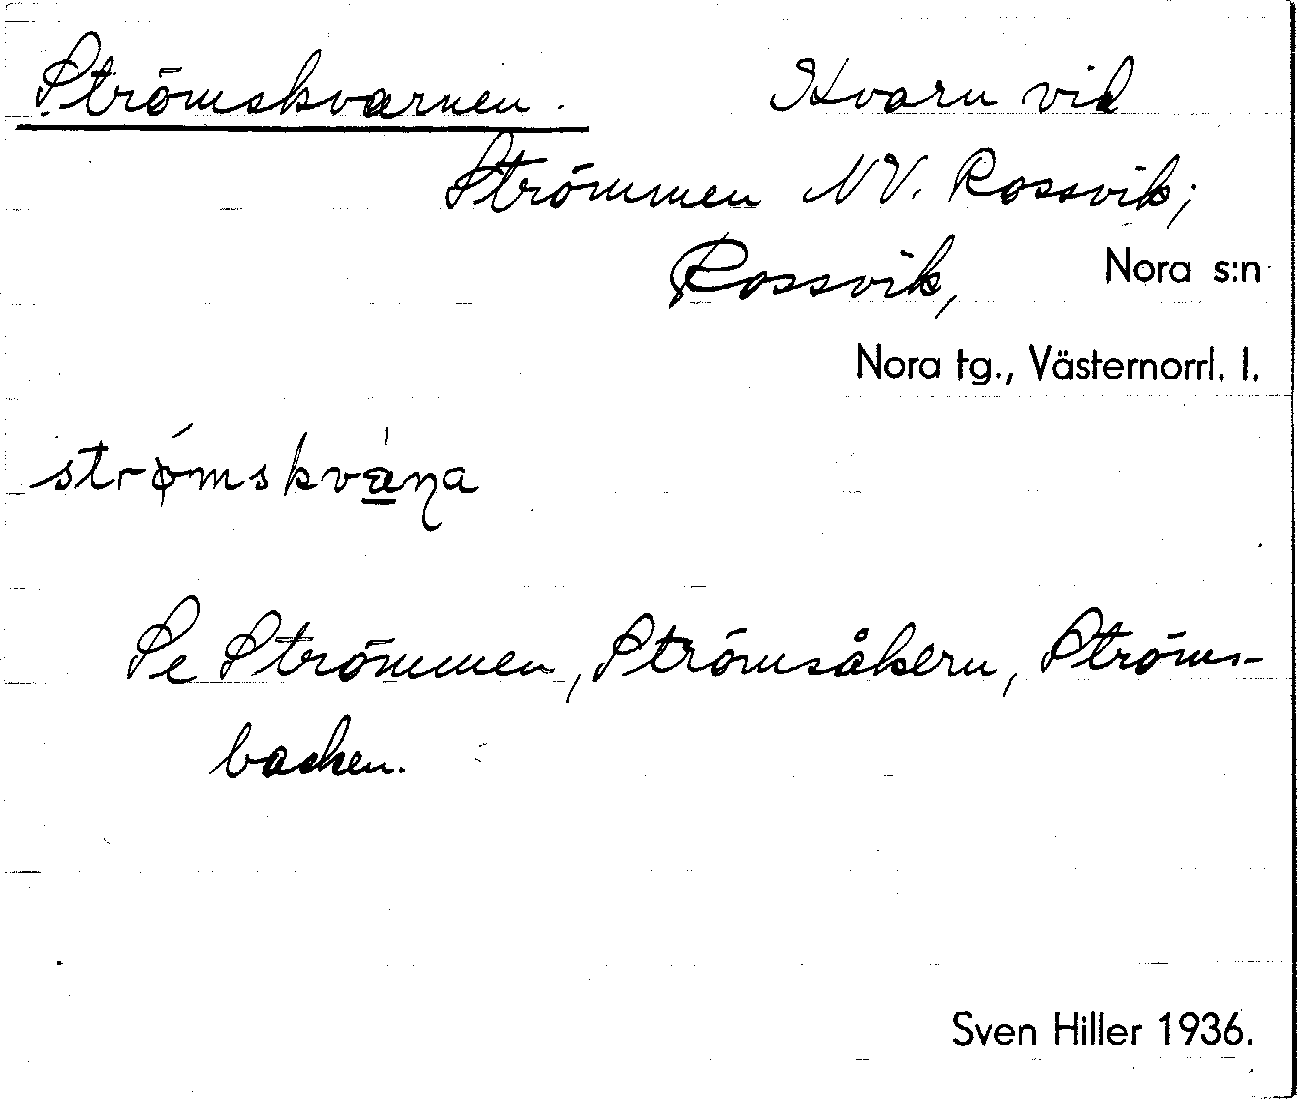 Strömskvarnen. Kvarn vid
Strömmen NV. Rossvik;
Rossvik, Nora s:n
Nora tg., Västernorrl. l.
strǿmskvàṇa
Se Strömmen, Strömsåkern, Ströms-
backen.
Sven Hiller 1936.